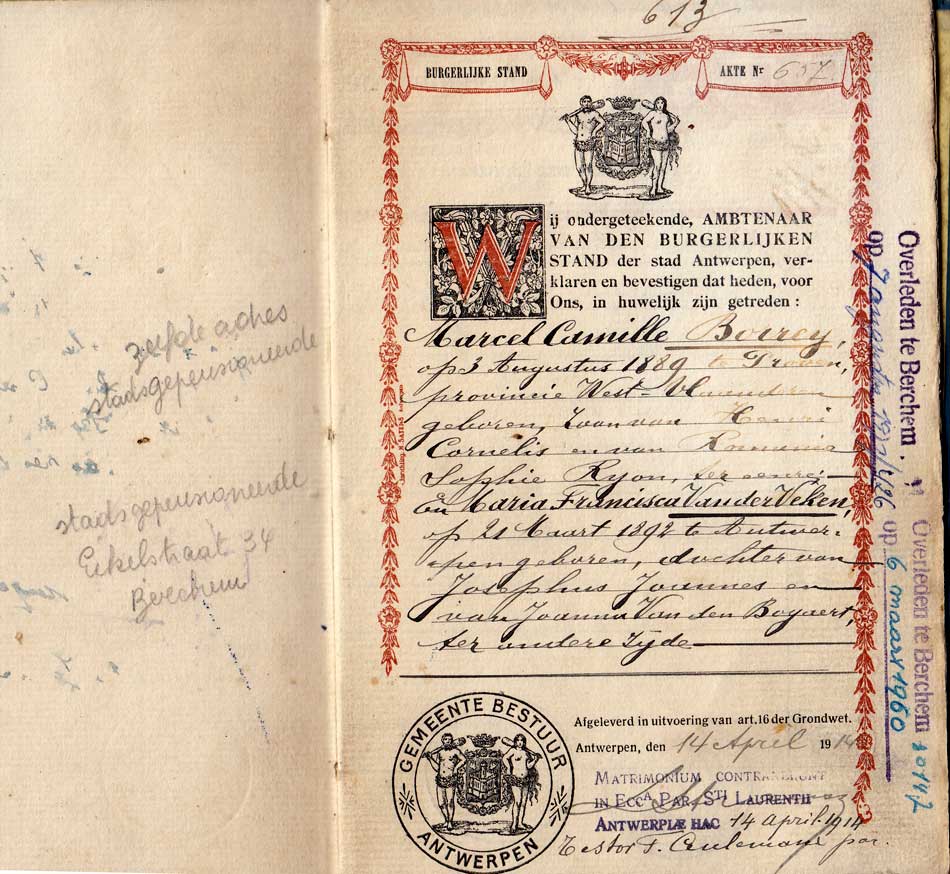 zelfde adres
stadsgepensioneerde
stadsgepensioneerde
Eikelstraat 34
Berchem
613
BURGERLIJKE STAND
AKTE Nr 657
Wij ondergeteekende, AMBTENAAR
VAN DEN BURGERLIJKEN
STAND der stad Antwerpen, ver-
klaren en bevestigen dat heden, voor
Ons, in huwelijk zijn getreden :
Marcel Camille Bourey,
op 3 Augustus 1889 te
provincie West-Vlaanderen
geboren, zoon van Henri
Cornelis en van
Sophie Ryon, ter eenre;
en Maria Francisca Van der Veken,
op 21 Maart 1892 te Antwer-
pen geboren, dochter van
Josephus Joannes en
van Joanna Van den Bogaert,
ter andere zijde
Afgeleverd in uitvoering van art. 16 der Grondwet.
Antwerpen, den 14 April 1914
GEMEENTE BESTUUR
ANTWERPEN
MATRIMONIUM CONTRAXERUNT
IN ECCA PAR. STI LAURENTII
ANTWERPIÆ HAC 14 April 1914
Testor F. Ceulemans par.
Overleden te Berchem
op
Overleden te Berchem
op 6 maart 1960